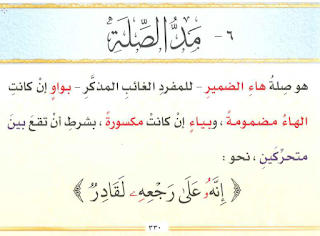 ٦ - مَدُّ الصِّلَةِ
هو صِلةُ هاءِ الضميرِ - للمفردِ الغائبِ المذكَّرِ - بواوٍ إنْ كانتِ
الهاءُ مضمومةً ، وبياءٍ إنْ كانتْ مكسورةً ، بشرطِ أنْ تقعَ بينَ
متحركَينِ ، نحو :
﴿ إِنَّهُۥ عَلَىٰ رَجْعِهِۦ لَقَادِرٌ ﴾
٢٣٠